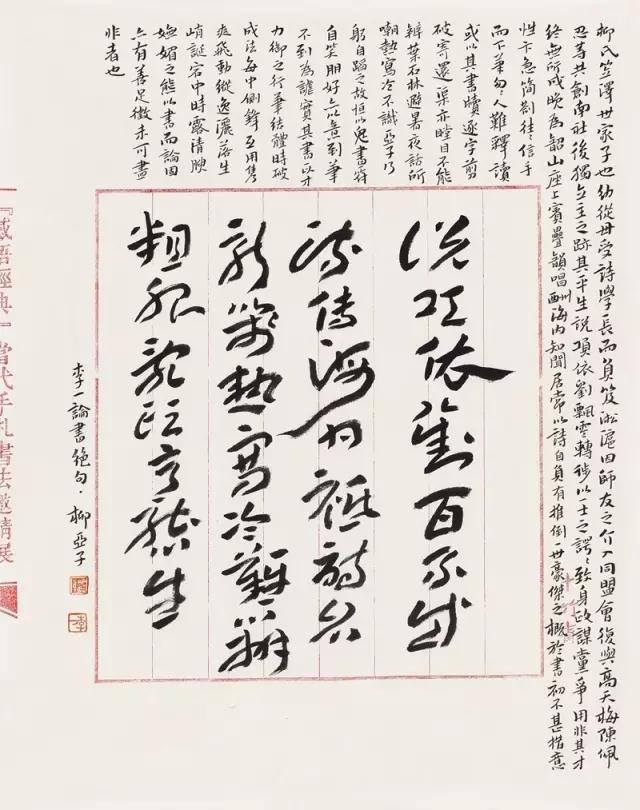 柳氏笠澤世家子也幼從母受詩學長而負笈淞滬因師友之介入同盟會復與高天梅陳佩
忍等共創南社後獨立主之跡其平生說項依劉飄零轉徙以一士之諤諤致身政謀黨爭用非其才
終無所成晚為韶山座上賓疊韻唱酬海內知聞居常以詩自負有推倒一世豪傑之概於書初不甚措意
性卞急簡劄往往信手
而下筆勿勿人難釋讀
或以其書牘逐字剪
破寄還渠亦瞠目不能
辨葉石林避暑夜話所
嘲熱寫冷不識亞子乃
躬自蹈之故恒以鬼畫符
自笑朋好亦以意到筆
不到為謔實其書以才
力御之行筆結體時破
成法每中側鋒互用隽
爽飛動縱逸灑落生
峭誕宕中時露清腴
嫵媚之態以書而論固
亦有善足徵未可盡
非者也
說項依劉百不成
流傳海內祗詩名
新箋熱寫冷難辨
粗服亂頭態生
李一論書絕句·柳亞子
『感悟經典』當代手札書法邀請展